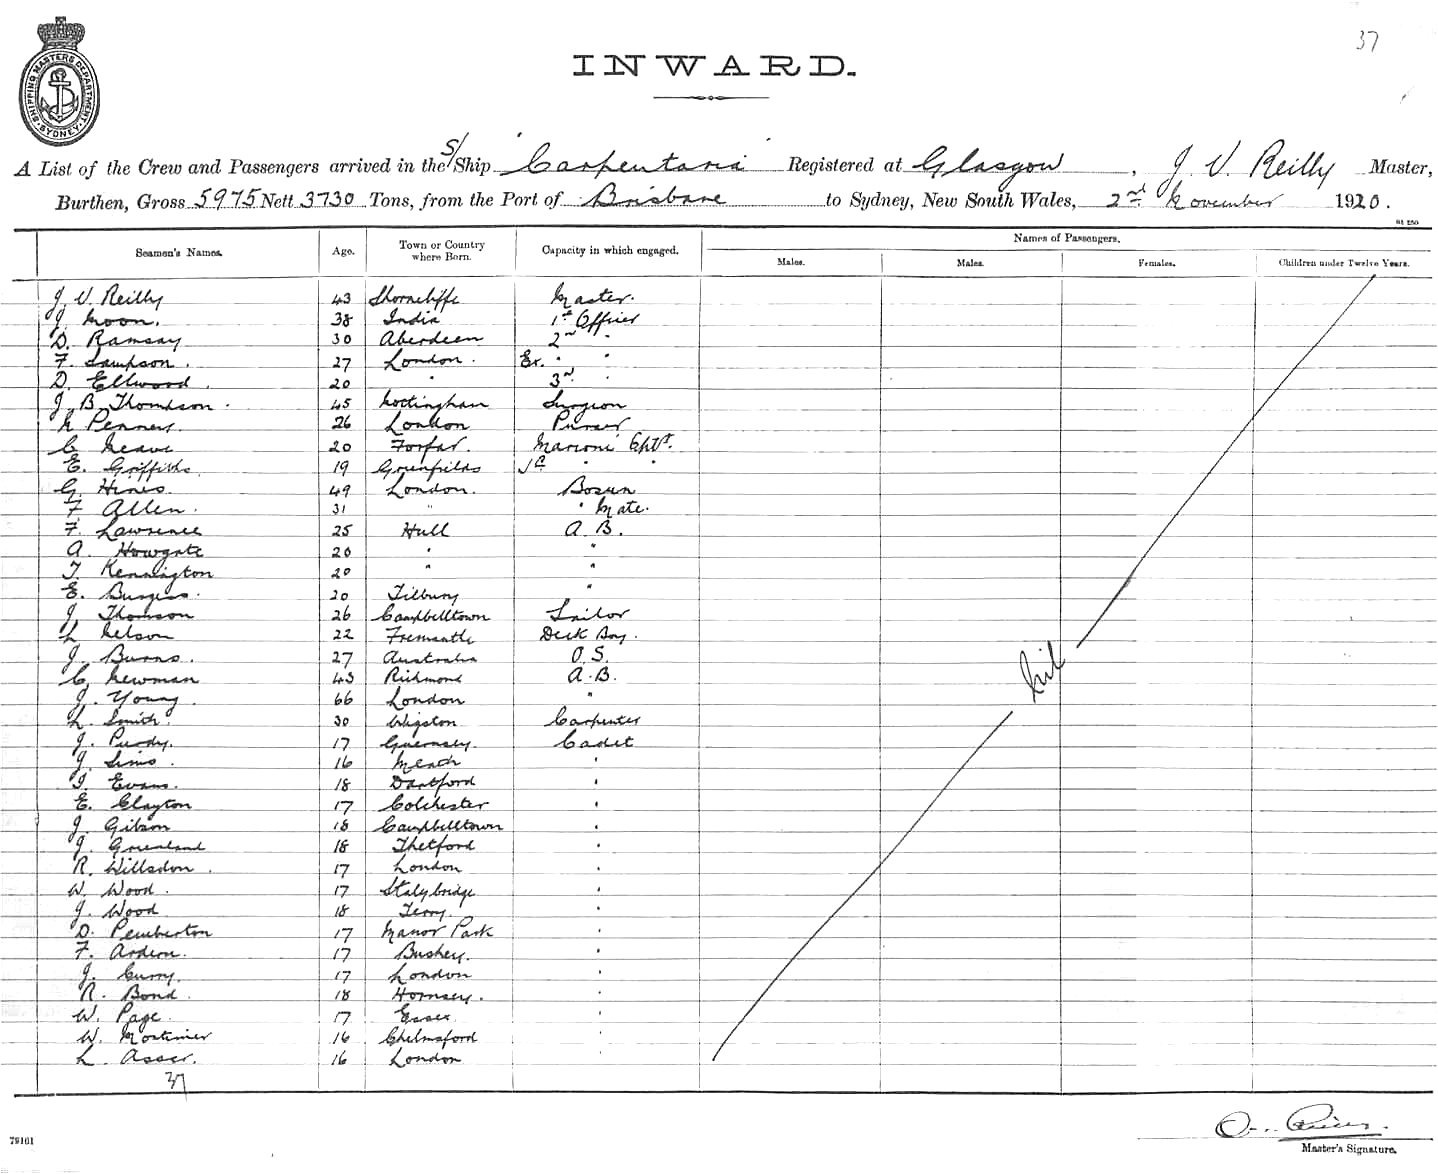 37
SHIPPING MASTERS DEPARTMENT SYDNEY
INWARD.
A List of the Crew and Passengers arrived in the S/Ship "Carpentaria" Registered at Glasgow, J. V. Reilly Master,
Burthen, Gross 5975 Nett 3730 Tons, from the Port of Brisbane to Sydney, New South Wales, 2nd November 1920.
Seamen's Names. Age. Town or Country where Born. Capacity in which engaged. Names of Passengers.
Males. Males. Females. Children under Twelve Years.
J. V. Reilly 43 Shorncliffe Master.
J. Moon. 38 India 1st Officer
D. Ramsay 30 Aberdeen 2nd "
F. Sampson. 27 London. Ex. " "
D. Ellwood. 20 " 3rd "
J. B. Thomson. 45 Nottingham Surgeon
N Penney 26 London Purser
C. Neave 20 Forfar. Marconi
E. Griffiths. 19 Greenfields " "
G. Hines. 49 London. Bosun
F. Allen. 31 " " Mate.
F. Lawrence 25 Hull A. B.
A. Howgate 20 " "
T. Kennington 20 " "
E. Burgess. 20 Tilbury "
J. Thomson 26 Campbelltown Sailor
L. Nelson 22 Fremantle Deck Boy.
J. Burns. 27 Australia O. S.
C. Newman 43 Richmond A. B.
J. Young. 66 London "
L. Smith. 30 Wigston Carpenter
J. Purdy. 17 Guernsey. Cadet
J. Sims. 16 Meath "
I. Evans. 18 Dartford "
E. Clayton 17 Colchester "
J. Gibson 18 Campbelltown "
J. Greenland 18 Thetford "
R. Willsdon. 17 London "
W. Wood. 17 Stalybridge "
J. Wood 18 "
D. Pemberton 17 Manor Park "
F. Ardern. 17 Bushey. "
J. Curry. 17 London "
R. Bond 18 Hornsey. "
W. Page. 17 Essex "
W. Mortimer 16 Chelmsford "
L. Asser. 16 London
Nil
37
79161
Master's Signature.